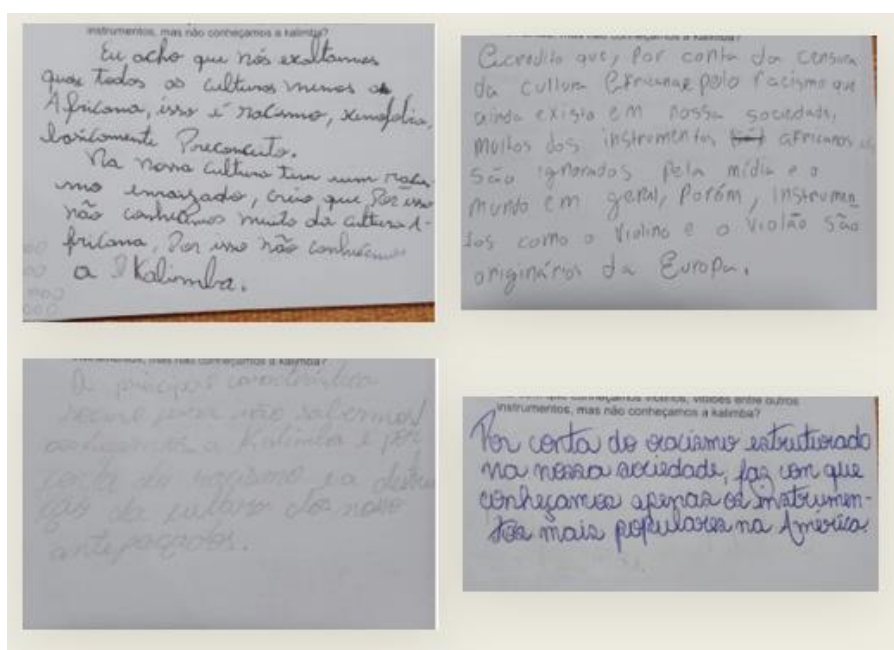 instrumentos, mas não conheçamos a kalimba?
Eu acho que nós exaltamos
quase todas as culturas menos a
Africana, isso é racismo, xenofobia,
basicamente Preconceito.
Na nossa cultura tem um racis
mo enraizado, creio que Por isso
não conhecemos muito da cultura A-
fricana, Por isso não conhecemos
a Kalimba.
Acredito que, Por conta da censura
da cultura Africana e pelo racismo que
ainda existe em nossa sociedade,
muitos dos instrumentos africanos
são ignorados pela mídia e o
mundo em geral, Porém, instrumen
tos como o Violino e o Violão são
originários da Europa.
instrumentos, mas não conheçamos a kalimba?
A principal característica
para não sabermos/
conhecermos a Kalimba é por
conta do racismo e a destrui
ção da cultura dos nosso
antepassados.
que conheçamos violinos, violões entre outros
instrumentos, mas não conheçamos a kalimba?
Por conta do racismo estruturado
na nossa sociedade, faz com que
conheçamos apenas os instrumen-
tos mais populares na América.